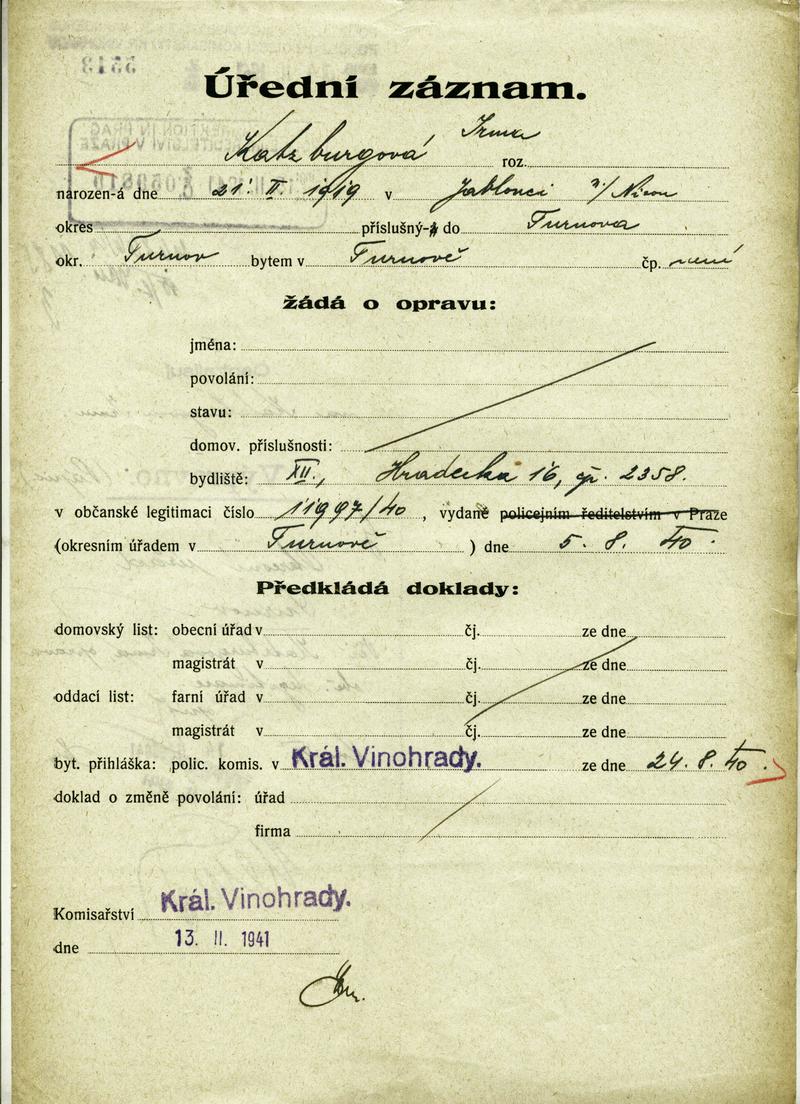 5513
Úřední záznam.
Katzburgová Irma roz.
narozen-á dne 21. II. 1919 v Jablonci n/Nisou
okres příslušný-á do Turnova
okr. Turnov bytem v Turnově čp. není
žádá o opravu:
jména:
povolání:
stavu:
domov. příslušnosti:
bydliště: XII., Hradecká 16, čp. 2358.
v občanské legitimaci číslo 11997/40, vydané policejním ředitelstvím v Praze
(okresním úřadem v Turnově) dne 5. 8. 40.
Předkládá doklady:
domovský list: obecní úřad v čj. ze dne
magistrát v čj. ze dne
oddací list: farní úřad v čj. ze dne
magistrát v čj. ze dne
byt. přihláška: polic. komis. v Král. Vinohrady. ze dne 24. 8. 40.
doklad o změně povolání: úřad
firma
Komisařství Král. Vinohrady.
dne 13. II. 1941